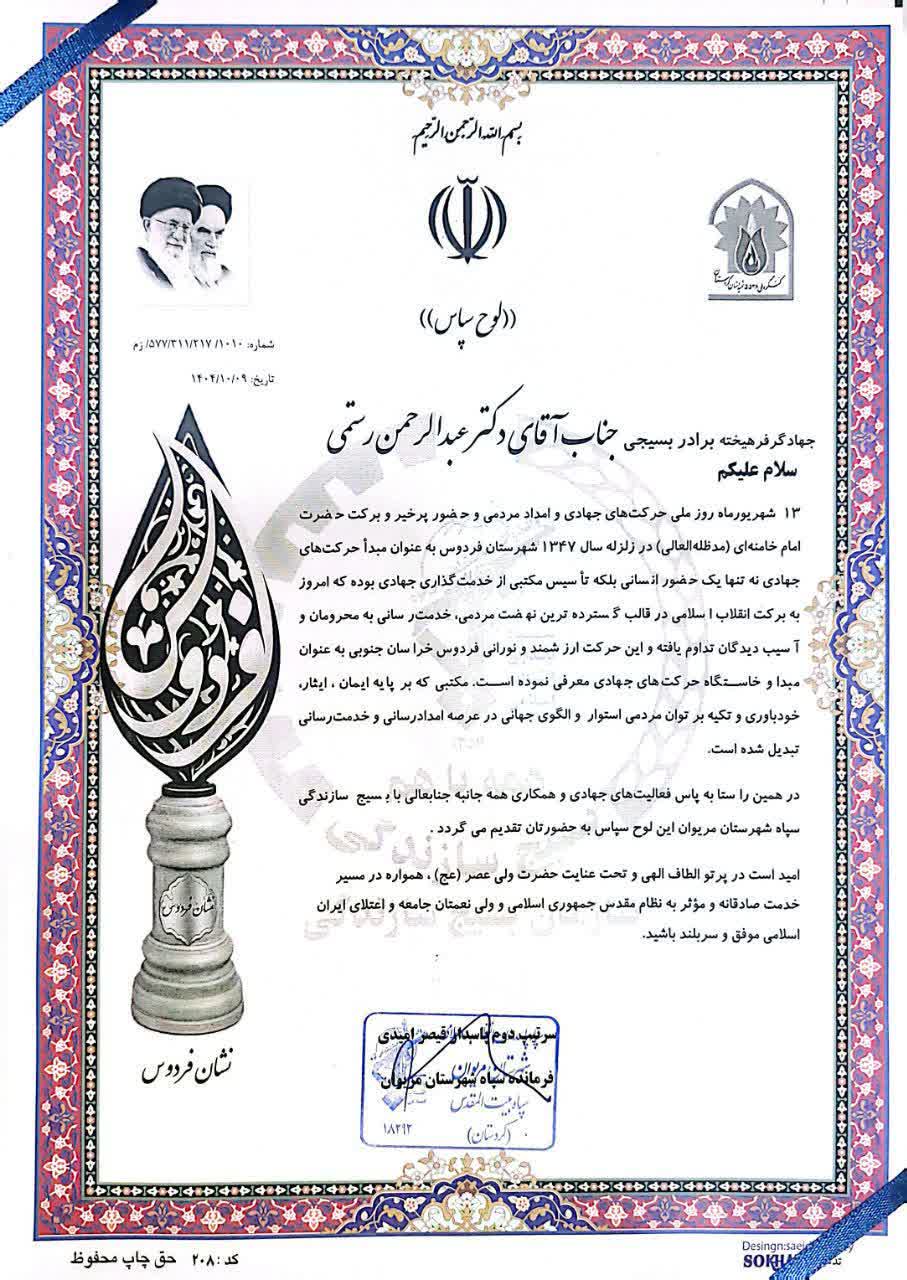 بسم الله الرحمن الرحیم
((لوح سپاس))
شماره: ۱۰۱۰/ ۵۷۷/۳۱۱/۲۱۷/ زم
تاریخ: ۱۴۰۴/۱۰/۰۹
جهادگر فرهیخته برادر بسیجی جناب آقای دکتر عبدالرحمن رستمی
سلام علیکم
۱۳ شهریورماه روز ملی حرکت‌های جهادی و امداد مردمی و حضور پرخیر و برکت حضرت
امام خامنه‌ای (مدظله‌العالی) در زلزله سال ۱۳۴۷ شهرستان فردوس به عنوان مبدأ حرکت‌های
جهادی نه تنها یک حضور انسانی بلکه تأسیس مکتبی از خدمت‌گذاری جهادی بوده که امروز
به برکت انقلاب اسلامی در قالب گسترده ترین نهضت مردمی، خدمت‌رسانی به محرومان و
آسیب دیدگان تداوم یافته و این حرکت ارزشمند و نورانی فردوس خراسان جنوبی به عنوان
مبدا و خاستگاه حرکت‌های جهادی معرفی نموده است. مکتبی که بر پایه ایمان ، ایثار،
خودباوری و تکیه بر توان مردمی استوار و الگوی جهانی در عرصه امدادرسانی و خدمت‌رسانی
تبدیل شده است.
در همین راستا به پاس فعالیت‌های جهادی و همکاری همه جانبه جنابعالی با بسیج سازندگی
سپاه شهرستان مریوان این لوح سپاس به حضورتان تقدیم می گردد .
امید است در پرتو الطاف الهی و تحت عنایت حضرت ولی عصر (عج) ، همواره در مسیر
خدمت صادقانه و مؤثر به نظام مقدس جمهوری اسلامی و ولی نعمتان جامعه و اعتلای ایران
اسلامی موفق و سربلند باشید.
فردوس
نشان فردوس
نشان فردوس
سرتیپ دوم پاسدار قیصر امیدی
فرمانده سپاه شهرستان مریوان
شهرستان مریوان
سپاه بیت المقدس
(کردستان)
۱۸۲۹۲
کد : ۲۰۸ حق چاپ محفوظ
Desingn:saei
SOKHA